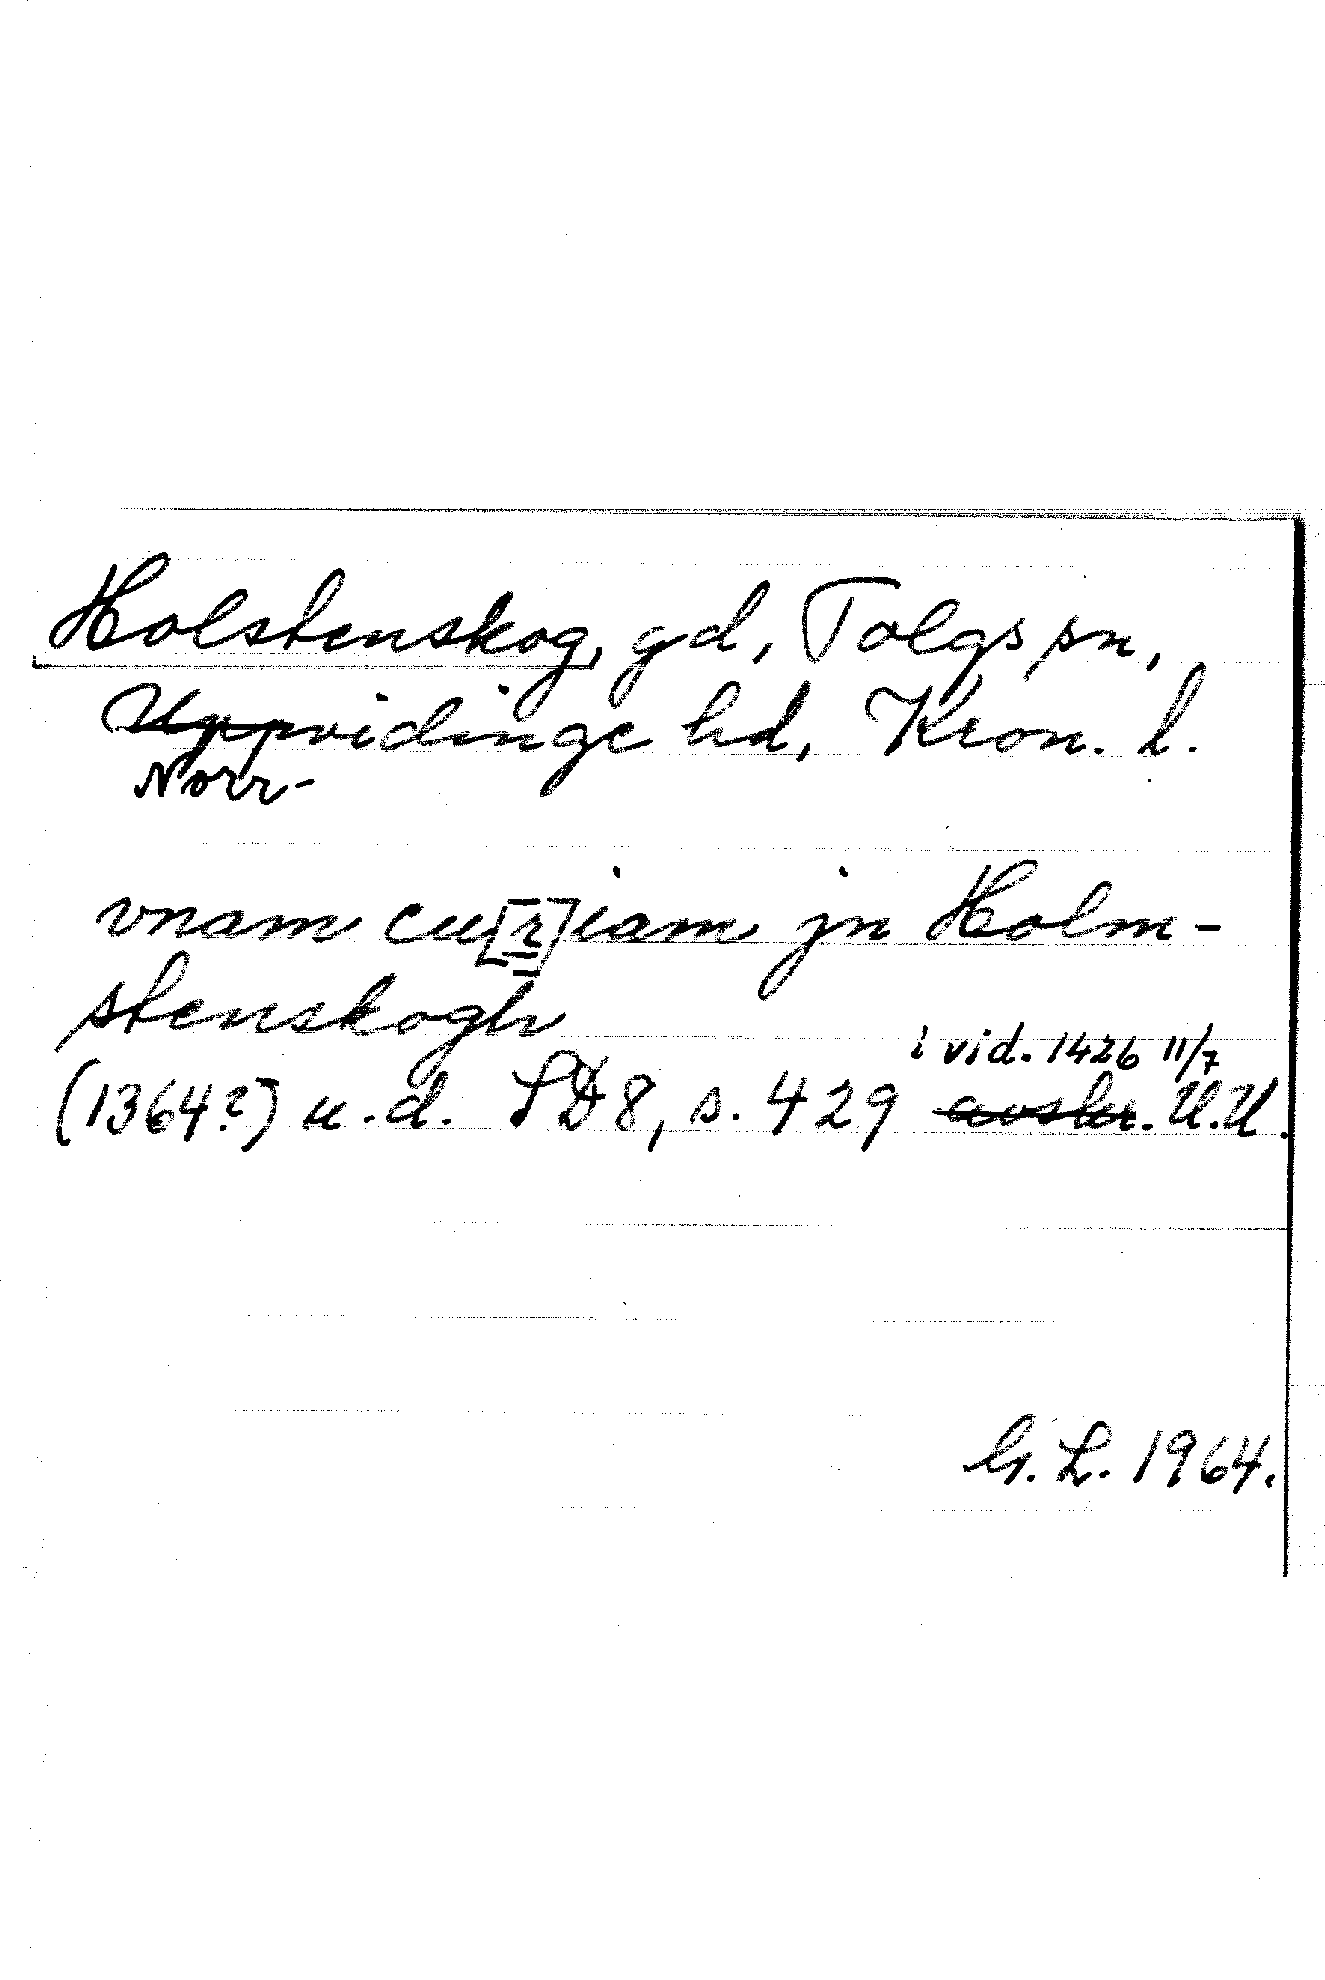 Holstenskog, gd, Tolgs sn,
Uppvidinge hd, Kron. l.
Norr-
vnam cu[r]iam jn Holm-
stenskogh
i vid. 1426 11/7
(1364?) u.d. SD 8, s. 429 avskr. U.U.
G. L. 1964.